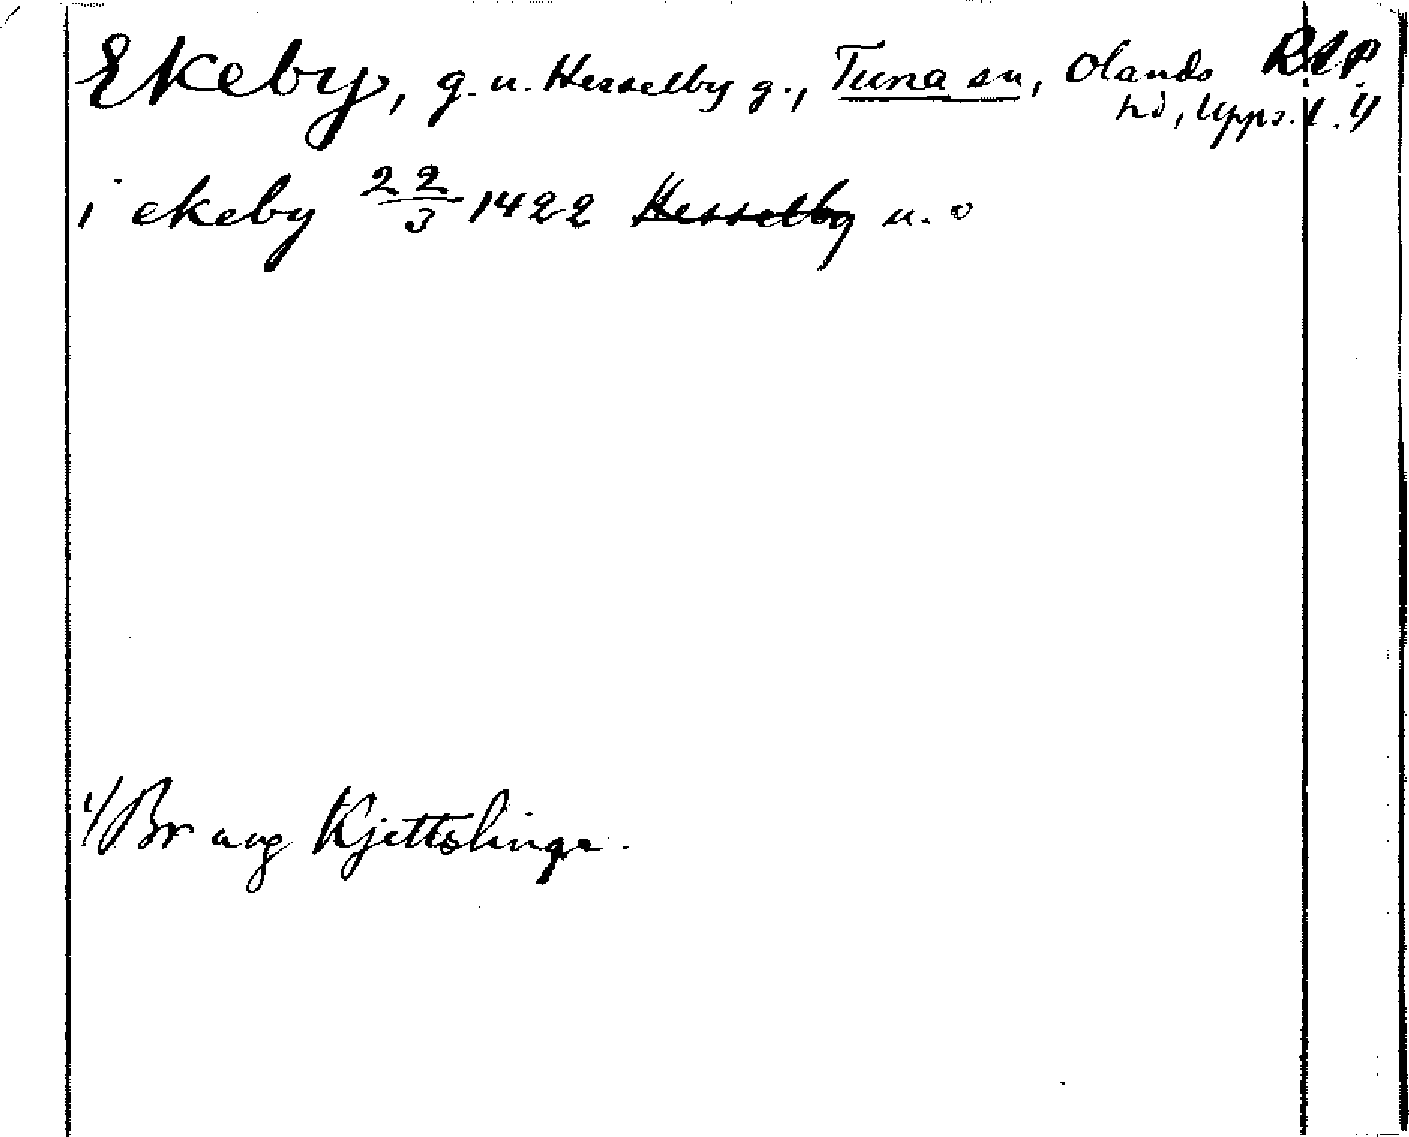 Ekeby, g. u. Hesselby g., Tuna sn, Olands RAP.
hd, Upps. l. 1)
i ekeby 22/3 1422 Hesselby u. o
1) Br ang Kjettslinge.